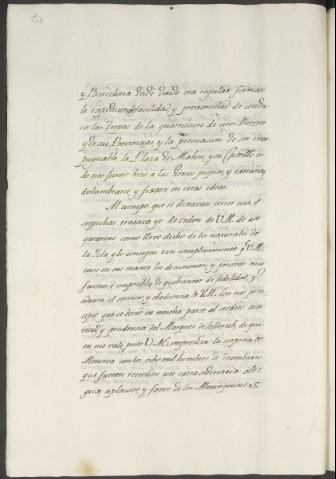 y Barcelona desde donde era regular formar
la expedicion, facilidad, y proximidad de condu-
cir las tropas de la guarnicion de esos Puertos
y de sus Provincias y la persuasion de ser inex-
pugnable la Plaza de Mahon, y su Castillo
todo junto hizo a las gentes propias, y extrañas
deslumbrarse, y fixarse en otras ideas.
Al tiempo que se dexavan correr una
sospechas tratava yo de orden de V.M. de ase-
gurarme como llevo dicho de los naturales de
la Isla, y lo consegui tan completamente q.e V.M.
tuvo en sus manos los documentos y
fueron de fidelidad, y
al servicio, y obediencia de V.M.
que se devió en mucha parte al credito acti-
vidad y prudencia del Marques de Sollerich, de qui-
en me valí, pudo V.M. emprender la conquista de
Menorca con los ocho mil hombres de desembarco
que fueron recividos con extraordinaria ale-
gria aplausos, y favor de los Menorquines